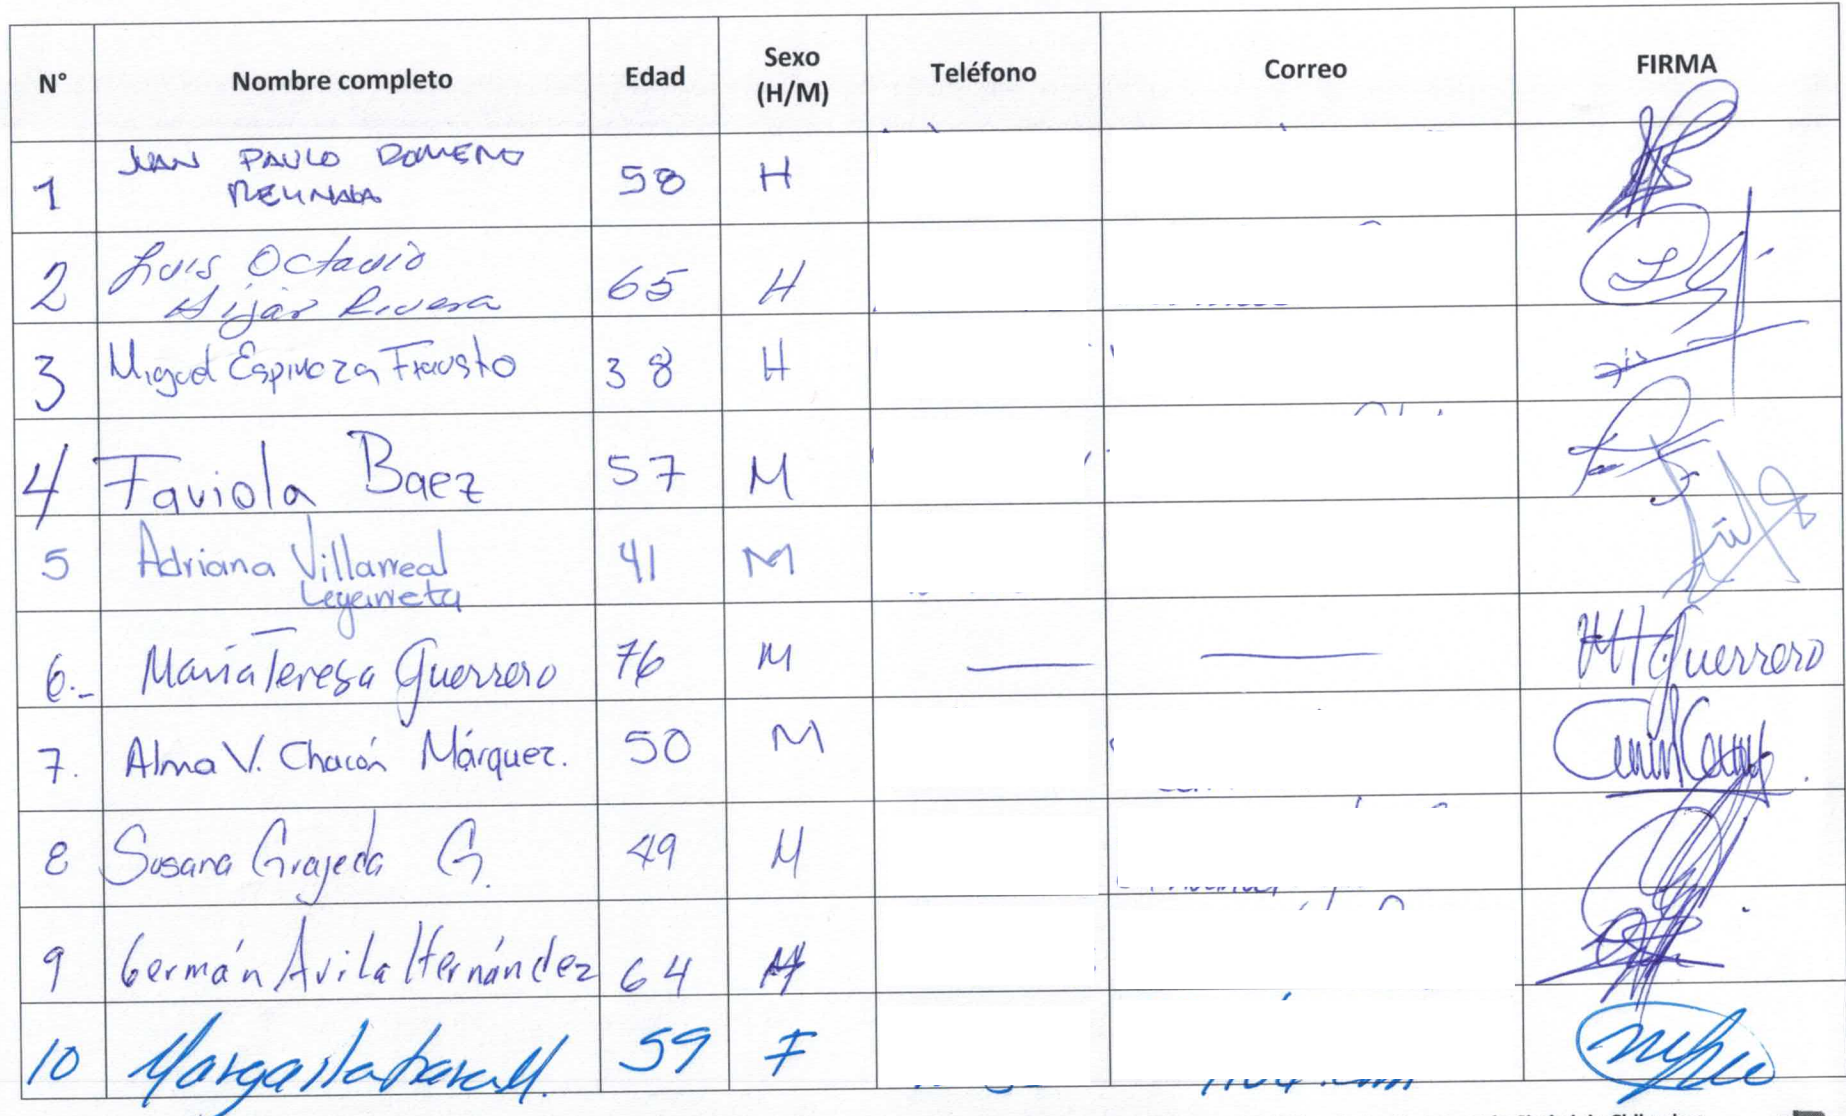 N° Nombre completo Edad Sexo (H/M) Teléfono Correo FIRMA
1 JUAN PAULO ROMERO 58 H
2 Luis Octavio Híjar Rivera 65 H
3 Miguel Espinoza Frausto 38 H
4 Faviola Baez 57 M
5 Adriana Villarreal Legarreta 41 M
6.- María Teresa Guerrero 76 M — — MT Guerrero
7. Alma V. Chacón Márquez. 50 M
8 Susana Grajeda G. 49 M
9 Germán Avila Hernández 64 H
10 Margarita 59 F